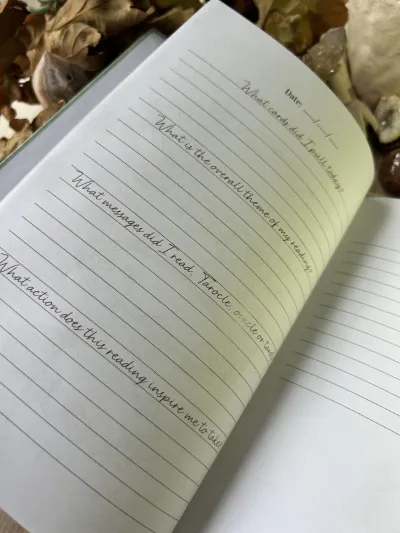 Date: __/__/__
What cards did I pull today?
What is the overall theme of my reading?
What messages did I read. Tarocle, oracle or
What action does this reading inspire me to take?